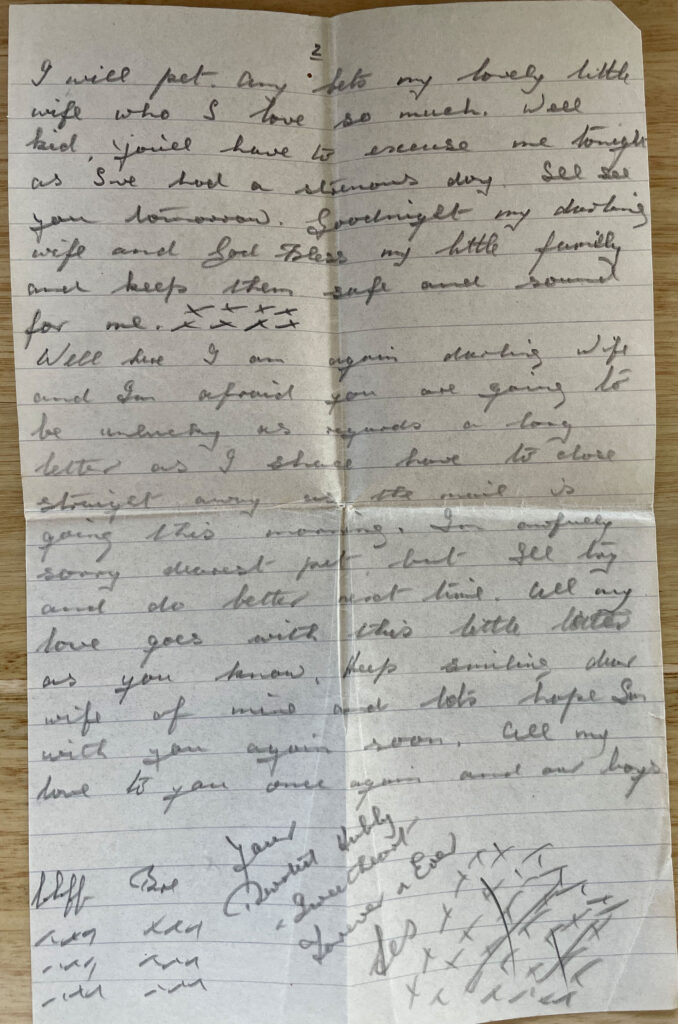 2
I will pet. Any lets my lovely little
wife who I love so much. Well
kid, you'll have to excuse me tonight
as I've had a strenuous day. I'll see
you tomorrow. Goodnight my darling
wife and God Bless my little family
and keeps them safe and sound
for me. x x x x
x x x x
Well here I am again darling wife
and I'm afraid you are going to
be unlucky as regards a long
letter as I shall have to close
straight away as the mail is
going this morning. I'm awfully
sorry dearest pet, but I'll try
and do better next time. All my
love goes with this little letter
as you know. Keep smiling dear
wife of mine and lets hope I'm
with you again soon. All my
love to you once again and our boys
Your
Devoted Hubby
Sweetheart
Forever n Ever
Les